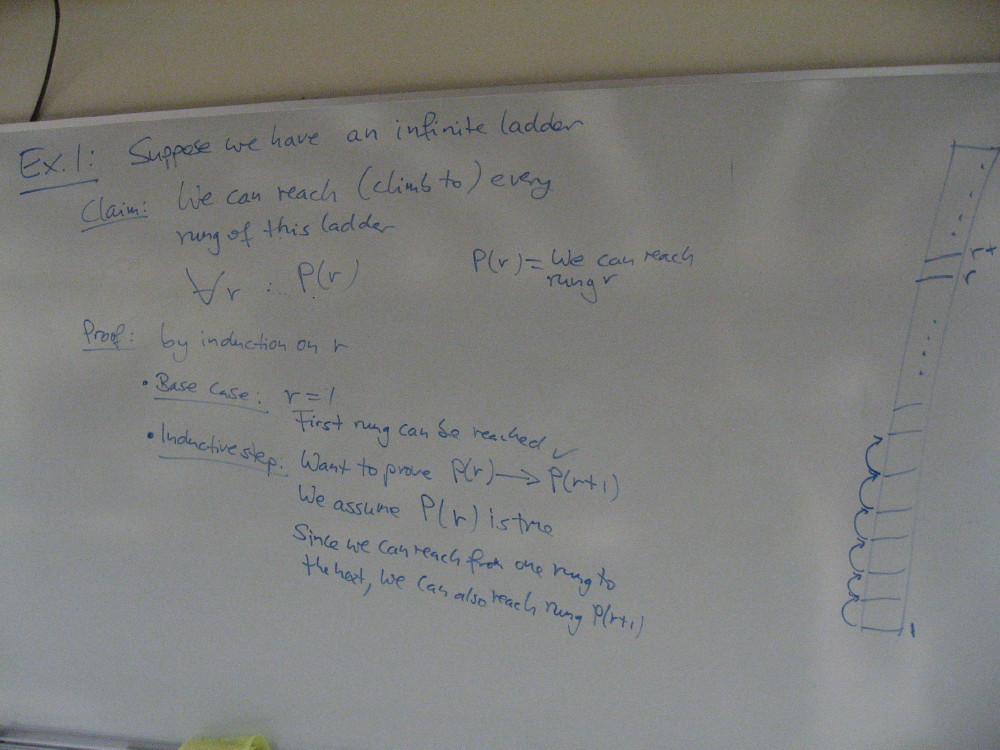 Ex.1: Suppose we have an infinite ladder
Claim: We can reach (climb to) every
rung of this ladder
∀r : P(r)
P(r) = We can reach
rung r
Proof: by induction on r
• Base case: r = 1
First rung can be reached ✓
• Inductive step: Want to prove P(r) → P(r+1)
We assume P(r) is true
Since we can reach from one rung to
the next, we can also reach rung P(r+1)
r+
r
1